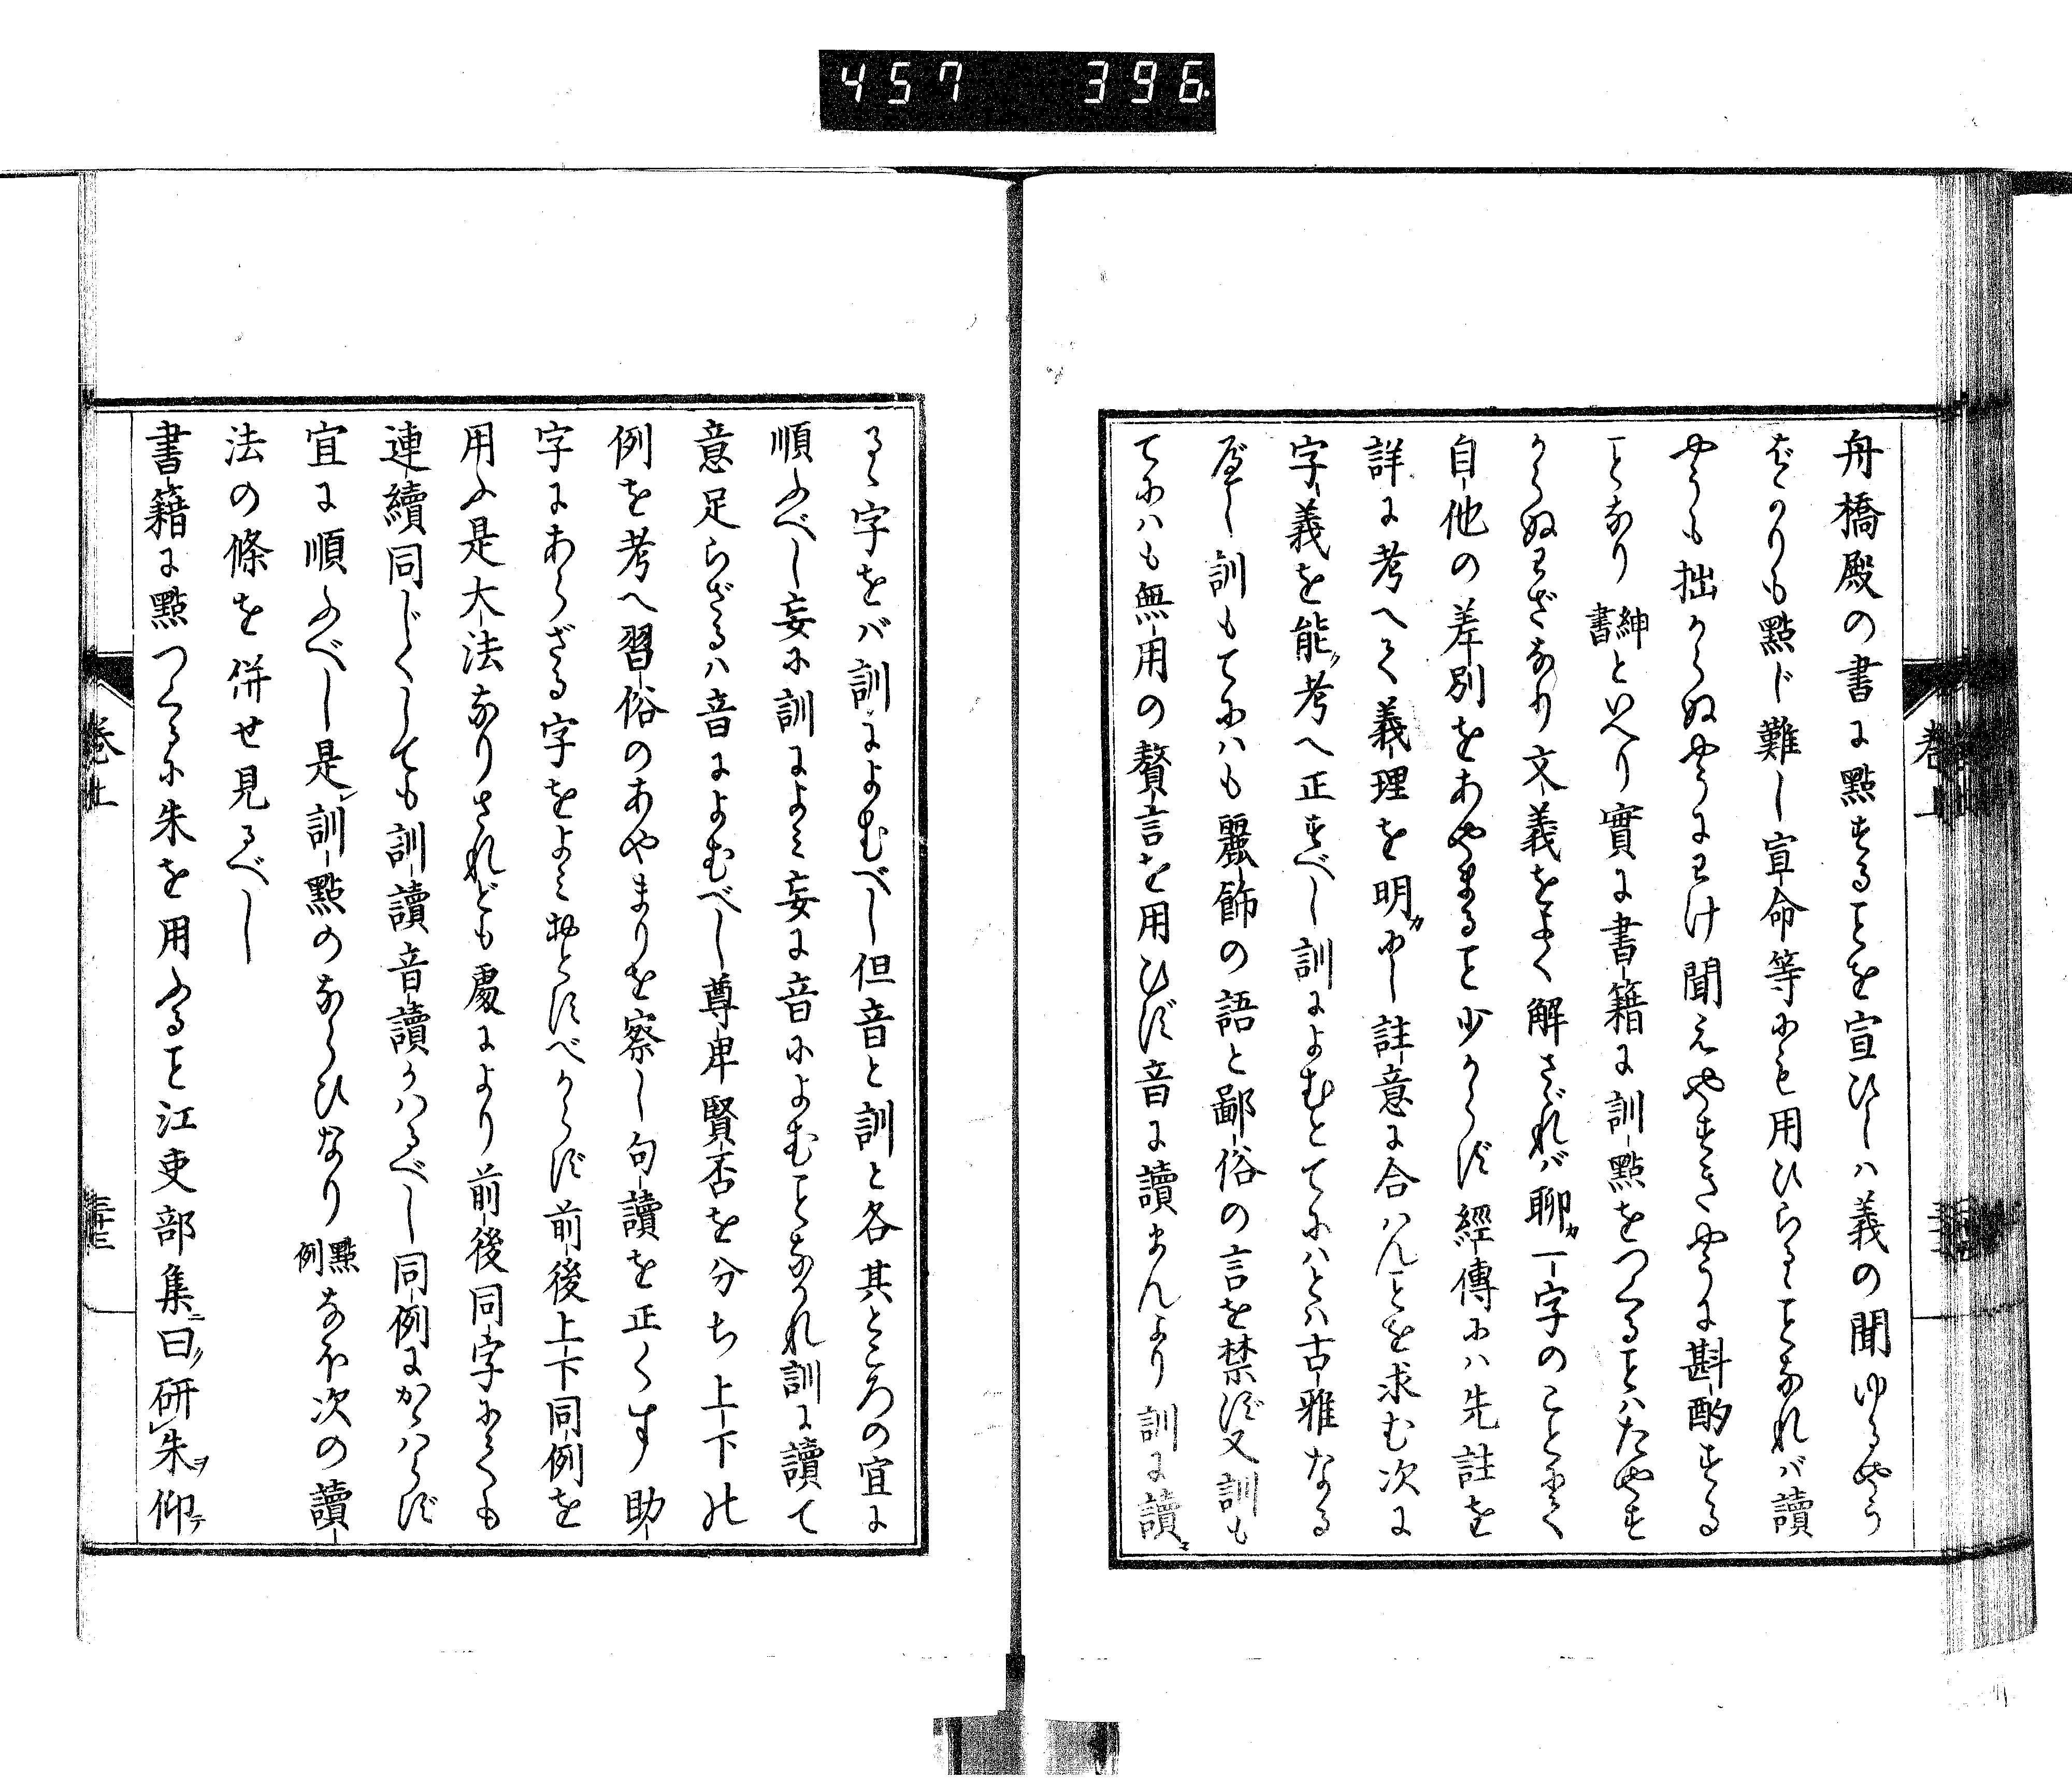 457 396
舟橋殿の書に點することを宣ひしハ義の聞ゆるやう
ばかりも點じ難し宣命等にも用ひらるゝことなれバ讀
やうも拙からぬやうにわけ聞えやすきやうに斟酌する
ことなり紳書といへり實に書籍に訓點をつくることハたやす
からぬわざなり文義をよく解さゞれバ聊カ一字のことにて
自他の差別をあやまること少からず經傳にハ先註を
詳に考へて義理を明カにし註意に合ハんことを求む次に
字義を能ク考へ正すべし訓によむとてにハとハ古雅なる
べし訓もてにハも麗飾の語と鄙俗の言を禁ず又訓も
てにハも無用の贅言を用ひず音に讀まんより訓に讀マ
卷上
るゝ字をバ訓によむべし但音と訓と各其ところの宜に
順ふべし妄に訓によミ妄に音によむことなかれ訓に讀て
意足らざるハ音によむべし尊卑賢否を分ち上下の
例を考へ習俗のあやまりを察し句讀を正くす助
字にあらざる字をよミおとすべからず前後上下同例を
用ふ是大法なりされども處により前後同字にても
連續同じくしても訓讀音讀かハるべし同例にかゝハらず
宜に順ふべし是レ訓點のならひなり點例なほ次の讀
法の條を併せ見るべし
書籍に點つくるに朱を用ふること江吏部集ニ曰ク研朱ヲ仰テ
卷上
三十三